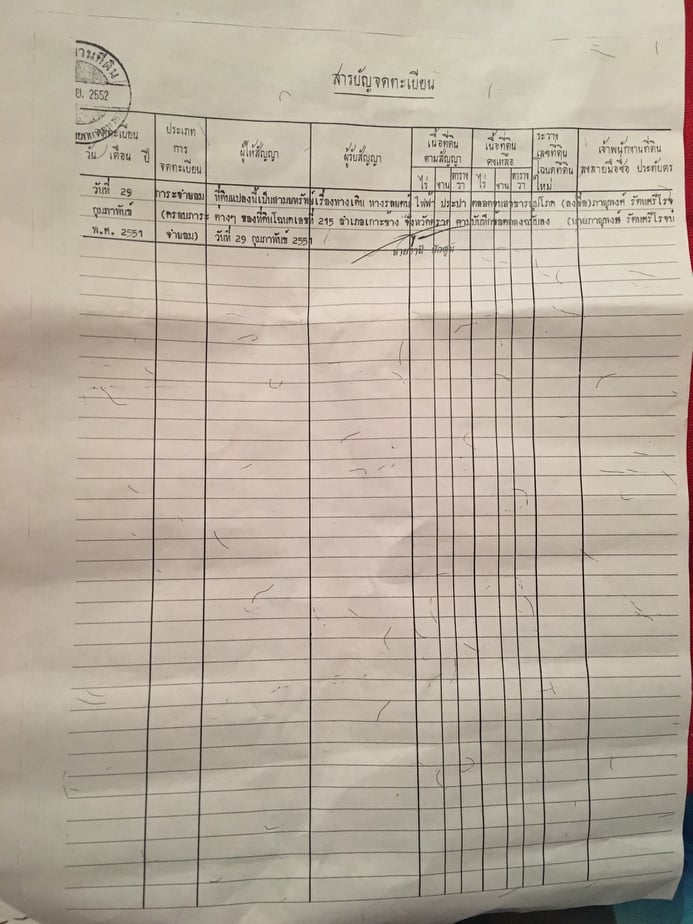 สารบัญจดทะเบียน
านที่ดิน
ย. 2552
จดทะเบียน
วัน เดือน ปี
ประเภท
การ
จดทะเบียน
ผู้ให้สัญญา
ผู้รับสัญญา
เนื้อที่ดิน
ตามสัญญา
ไร่ งาน ตาราง
วา
เนื้อที่ดิน
คงเหลือ
ไร่ งาน ตาราง
วา
ระวาง
เลขที่ดิน
โฉนดที่ดิน
ใหม่
เจ้าพนักงานที่ดิน
ลงลายมือชื่อ ประทับตรา
วันที่ 29 ภาระจำยอม ที่ดินแปลงนี้เป็นสามยทรัพย์เรื่องทางเดิน ทางรถยนต์ ไฟฟ้า ประปา ตลอดจนสาธารณูปโภค (ลงชื่อ)ภาณุพงศ์ รัตนศรีโรจ
กุมภาพันธ์ (ครอบภาระ ต่างๆ ของที่ดินโฉนดเลขที่ 215 อำเภอเกาะช้าง จังหวัดตราด ตามบันทึกข้อตกลงฉบับลง (นายภาณุพงศ์ รัตนศรีโรจน์
พ.ศ. 2551 จำยอม) วันที่ 29 กุมภาพันธ์ 2551